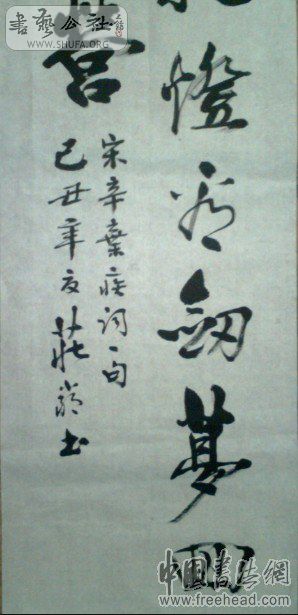 燈看劍夢回
營
宋辛棄疾词一句
己丑年夏莊书
書藝公社
WWW.SHUFA.ORG
中国书法網
www.freehead.com